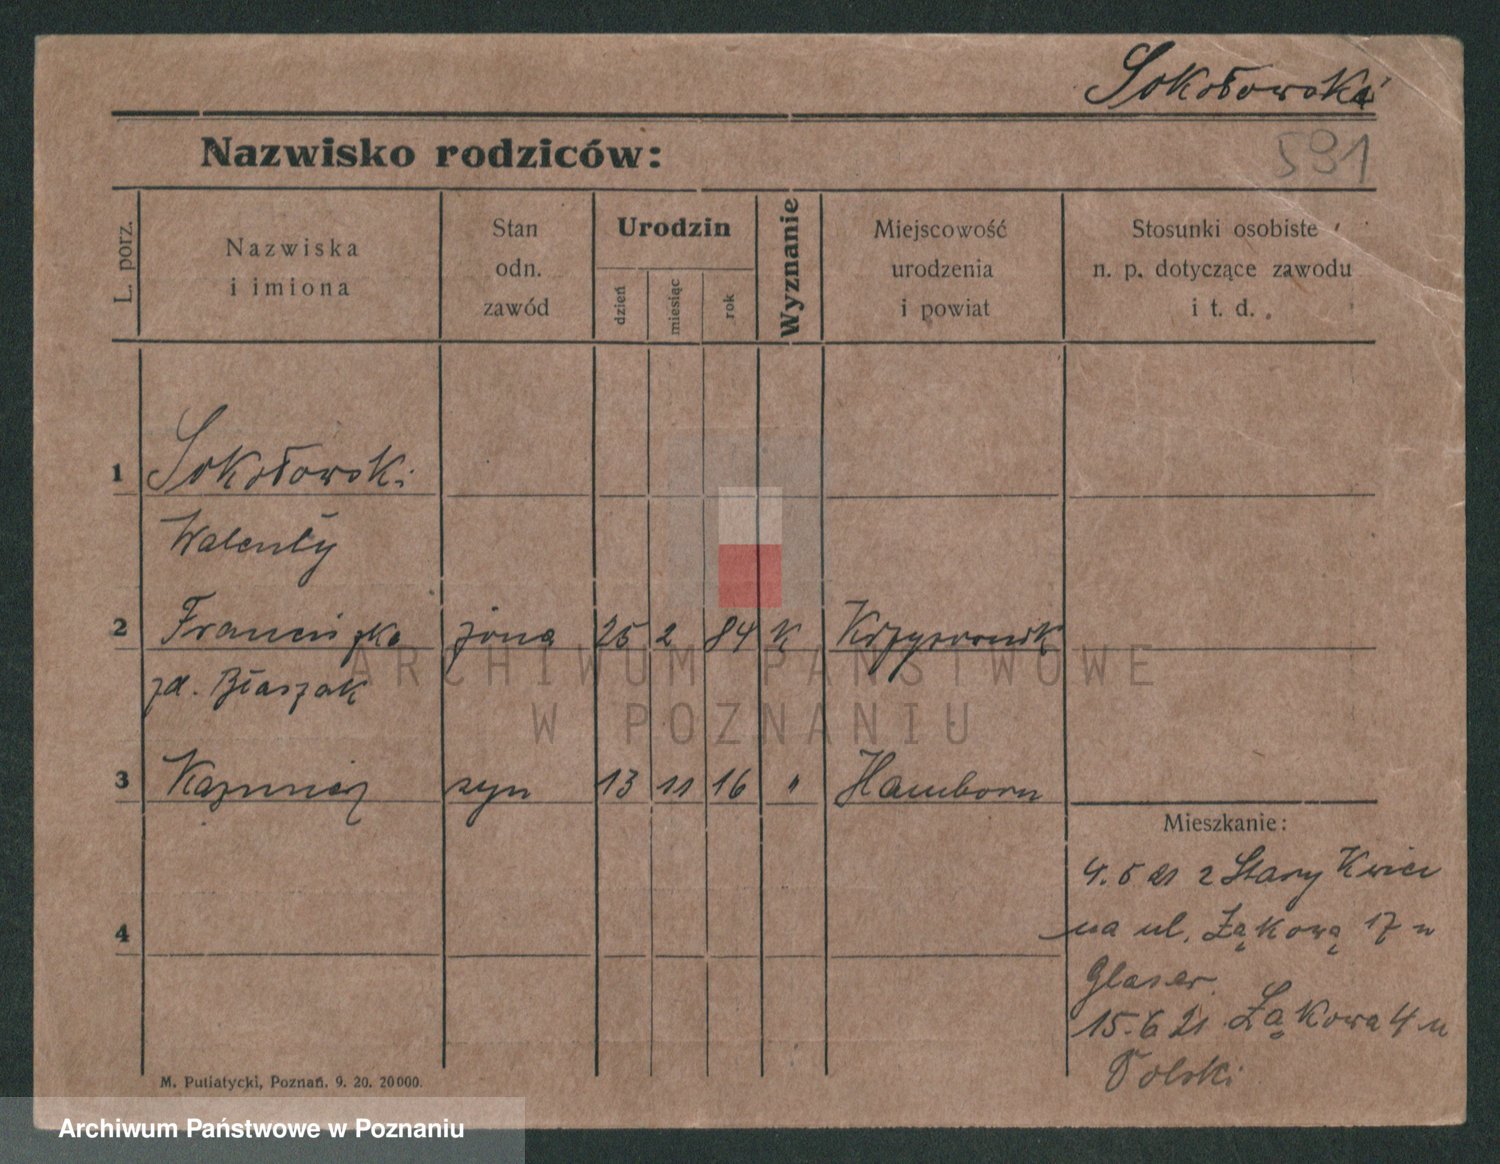 Sokołowska
Nazwisko rodziców:
591
L. porz.
Nazwiska
i imiona
Stan
odn.
zawód
Urodzin
dzień
miesiąc
rok
Wyznanie
Miejscowość
urodzenia
i powiat
Stosunki osobiste
n. p. dotyczące zawodu
i t. d.
1 Sokołowski
Walenty
2 Franciszka żona 25 2 84 K
zd. Błaszak
ARCHIWUM PAŃSTWOWE
W POZNANIU
3 Kazmierz syn 13 11 16 " Hamborn
Mieszkanie:
4. 5 21 z Stary Kwiec
na ul. Łąkową 17 u
4
Glaser.
15. 6 21 Łąkowa 4 u
Polski
M. Putiatycki, Poznań. 9. 20. 20000.
Archiwum Państwowe w Poznaniu